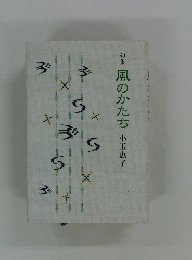 句集
風のかたち
小玉恵子